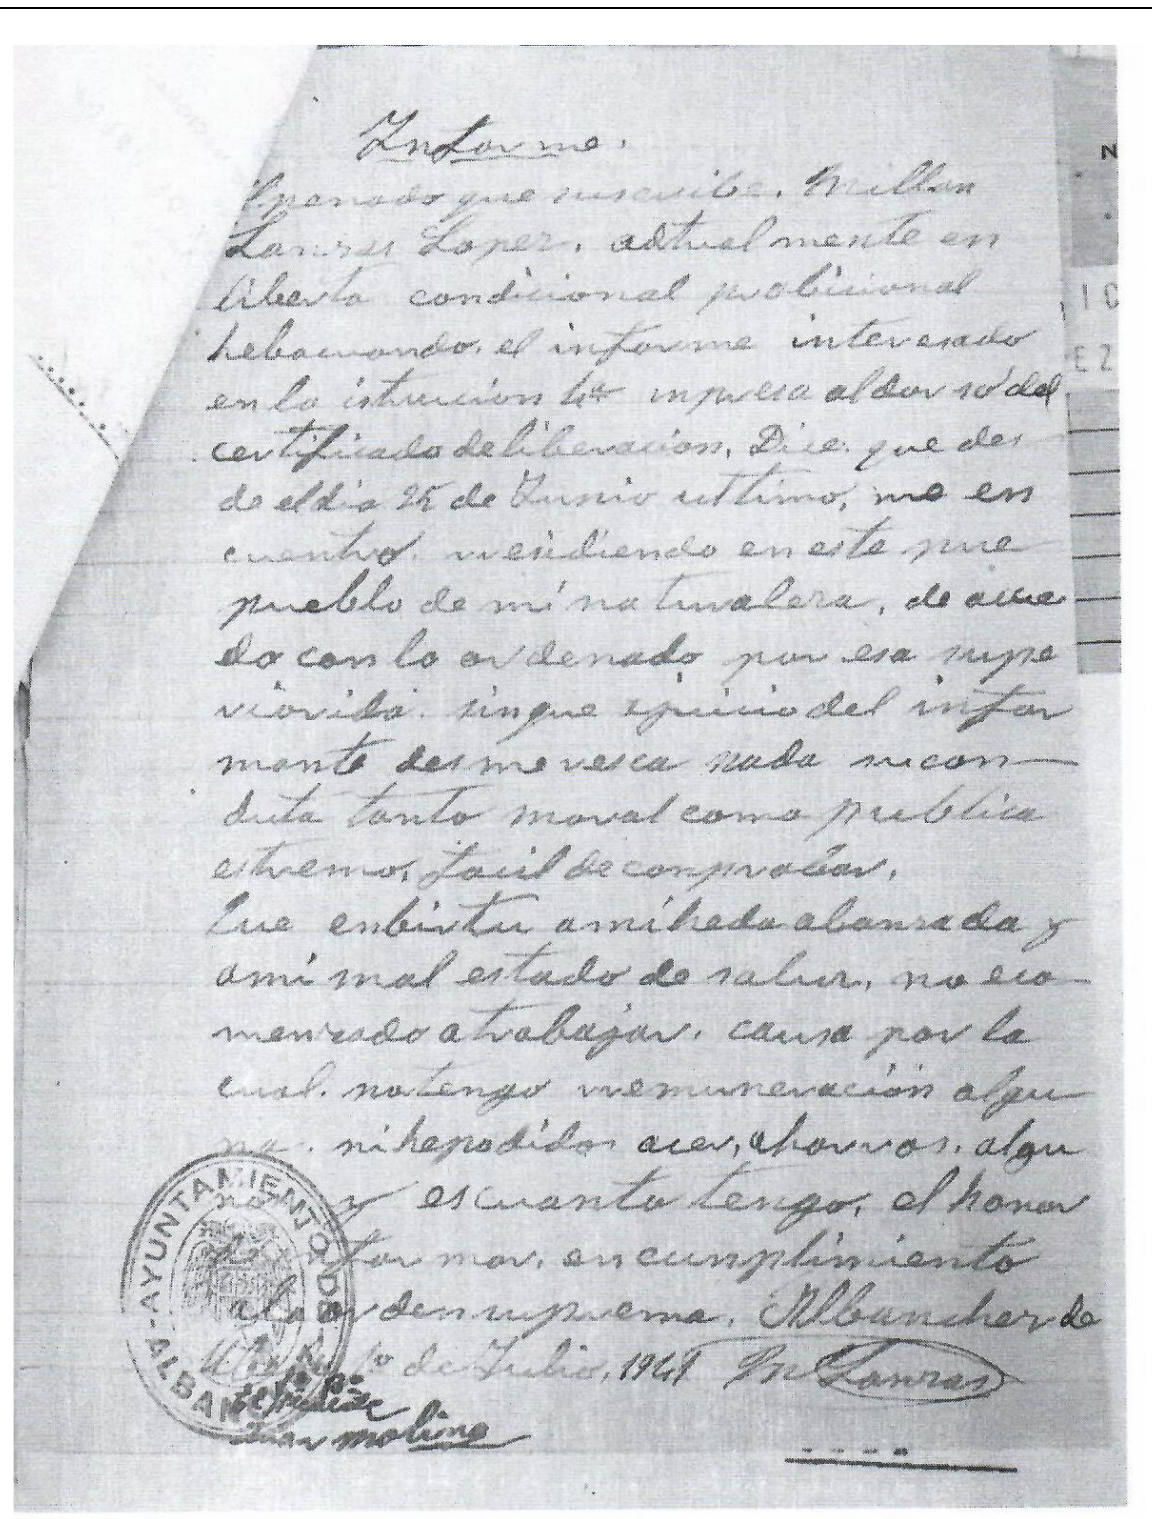 Informe.
El penado que suscribe. Millan
Lanzas Lopez. actualmente en
liberta condicional probicional
hebacuando. el informe interesado
en la istrucion 4ª inpresa al dorso del
certificado de liberacion. Dice. que des
de el dia 25 de Junio ultimo, me en
cuentro. residiendo en este pue
pueblo de mi naturalesa, de acue
do con lo ordenado por esa supe
riorida. sin que ajuicio del infor
mante desmeresca nada su con—
duta tanto moral como publica
estremo, facil de conprobar.
Que enbirtu a mi heda abanzada y
a mi mal estado de salur, no e co—
menzado a trabajar. causa por la
cual. no tengo rremuneracion algu
na. ni he podidos acer, ahorros. algu
no y es cuanto tengo, el honor
formar, en cunplimiento
a la orden suprema. Albanchez de
1º de Julio, 1941 M Lanzas
Vº Bº
El Alcalde
Juan Molina
AYUNTAMIENTO DE
ALBAN
N
10
EZ